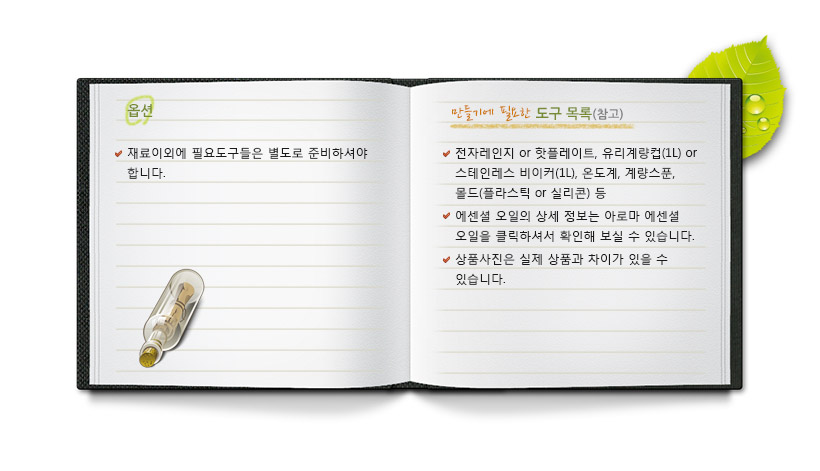 옵션
재료이외에 필요도구들은 별도로 준비하셔야
합니다.
만들기에 필요한 도구 목록(참고)
전자레인지 or 핫플레이트, 유리계량컵(1L) or
스테인레스 비이커(1L), 온도계, 계량스푼,
몰드(플라스틱 or 실리콘) 등
에센셜 오일의 상세 정보는 아로마 에센셜
오일을 클릭하셔서 확인해 보실 수 있습니다.
상품사진은 실제 상품과 차이가 있을 수
있습니다.